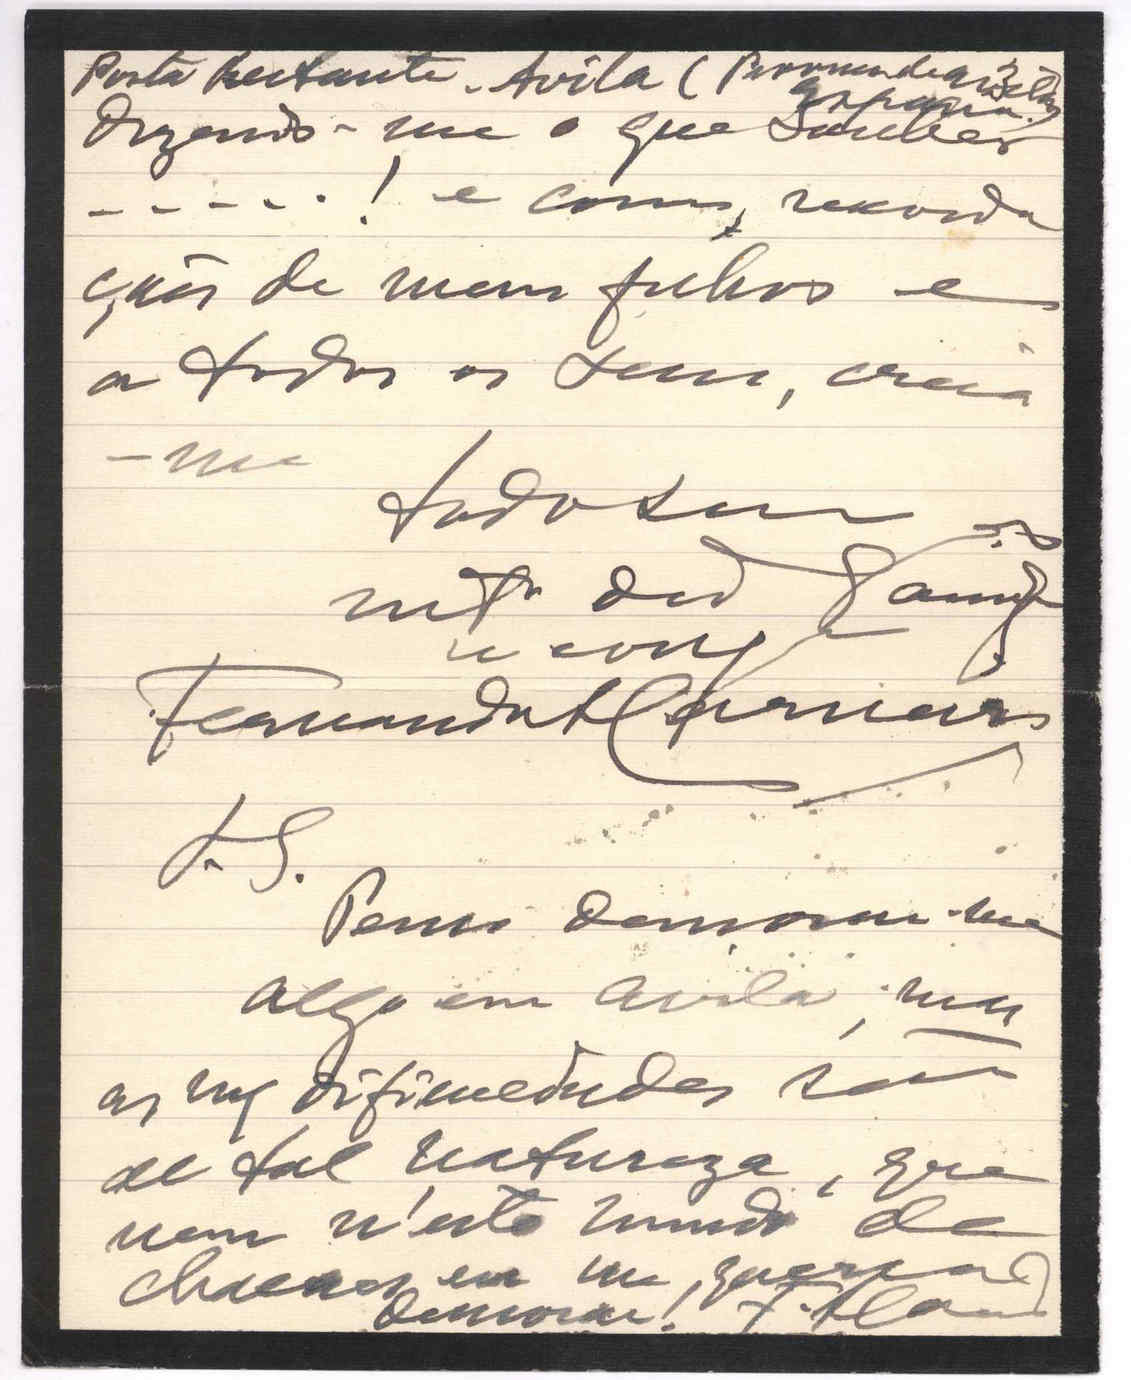 Posta Restante. Avila (
España)
Dizendo-me o que souber
-----! e com, recorda
ções de meus filhos e
a todos os seus, creia
-me
todo seu
mto ded
Fernanda
P.S.
Penso demorar-me
algo em Avila, mas
as dificuldades são
de tal natureza, que
nem n'este mundo de
eu me
demorar!